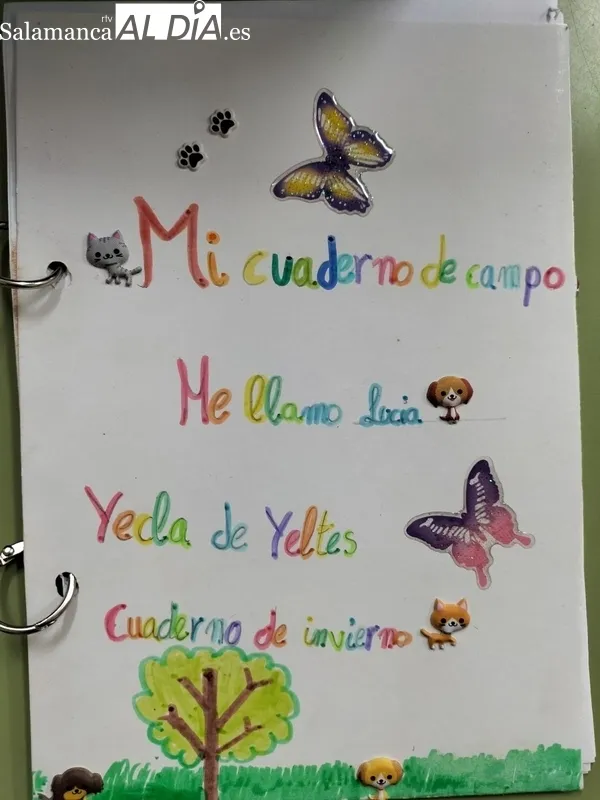 rtv
Salamanca AL DÍA.es
Mi cuaderno de campo
Me llamo Lucía
Yecla de Yeltes
Cuaderno de invierno